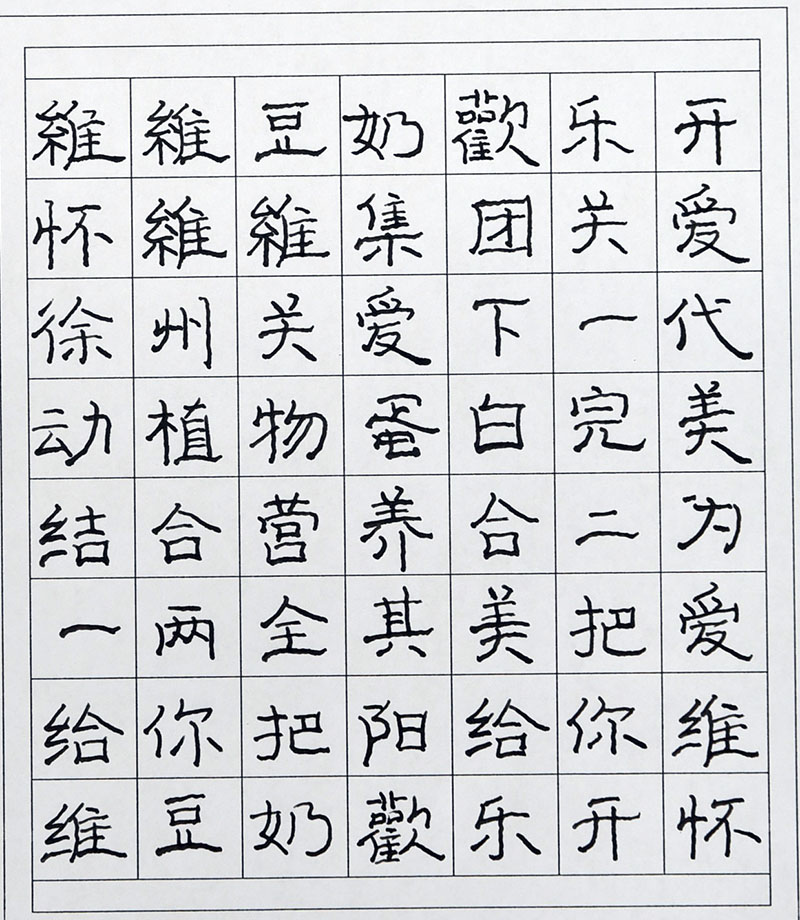 維維豆奶歡乐开
怀維維集团关爱
徐州关爱下一代
动植物蛋白完美
结合营养合二为
一两全其美把爱
给你把阳给你维
维豆奶歡乐开怀